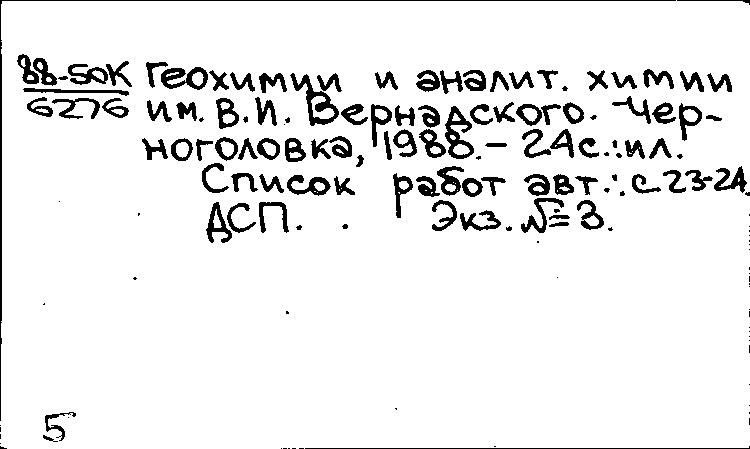 88-50К геохимии и аналит. химии
6276 им. В.И. Вернадского. - Чер-
ноголовка, 1988. - 24 с.: ил.
Список работ авт.: с. 23-24.
ДСП. . Экз. № 3.
5